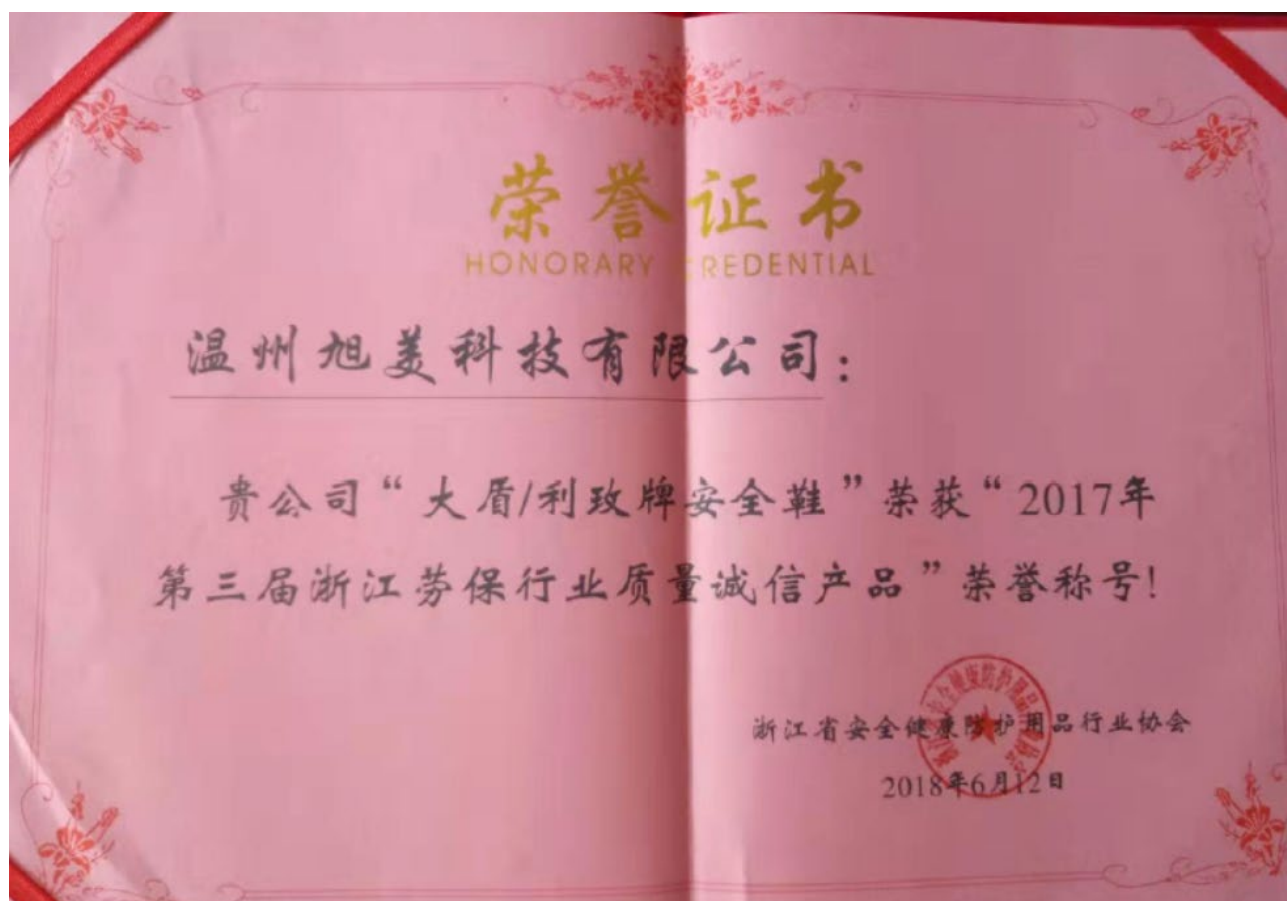 荣誉证书
HONORARY CREDENTIAL
温州旭美科技有限公司：
贵公司“大盾/利玫牌安全鞋”荣获“2017年
第三届浙江劳保行业质量诚信产品”荣誉称号！
浙江省安全健康防护用品行业协会
2018年6月12日